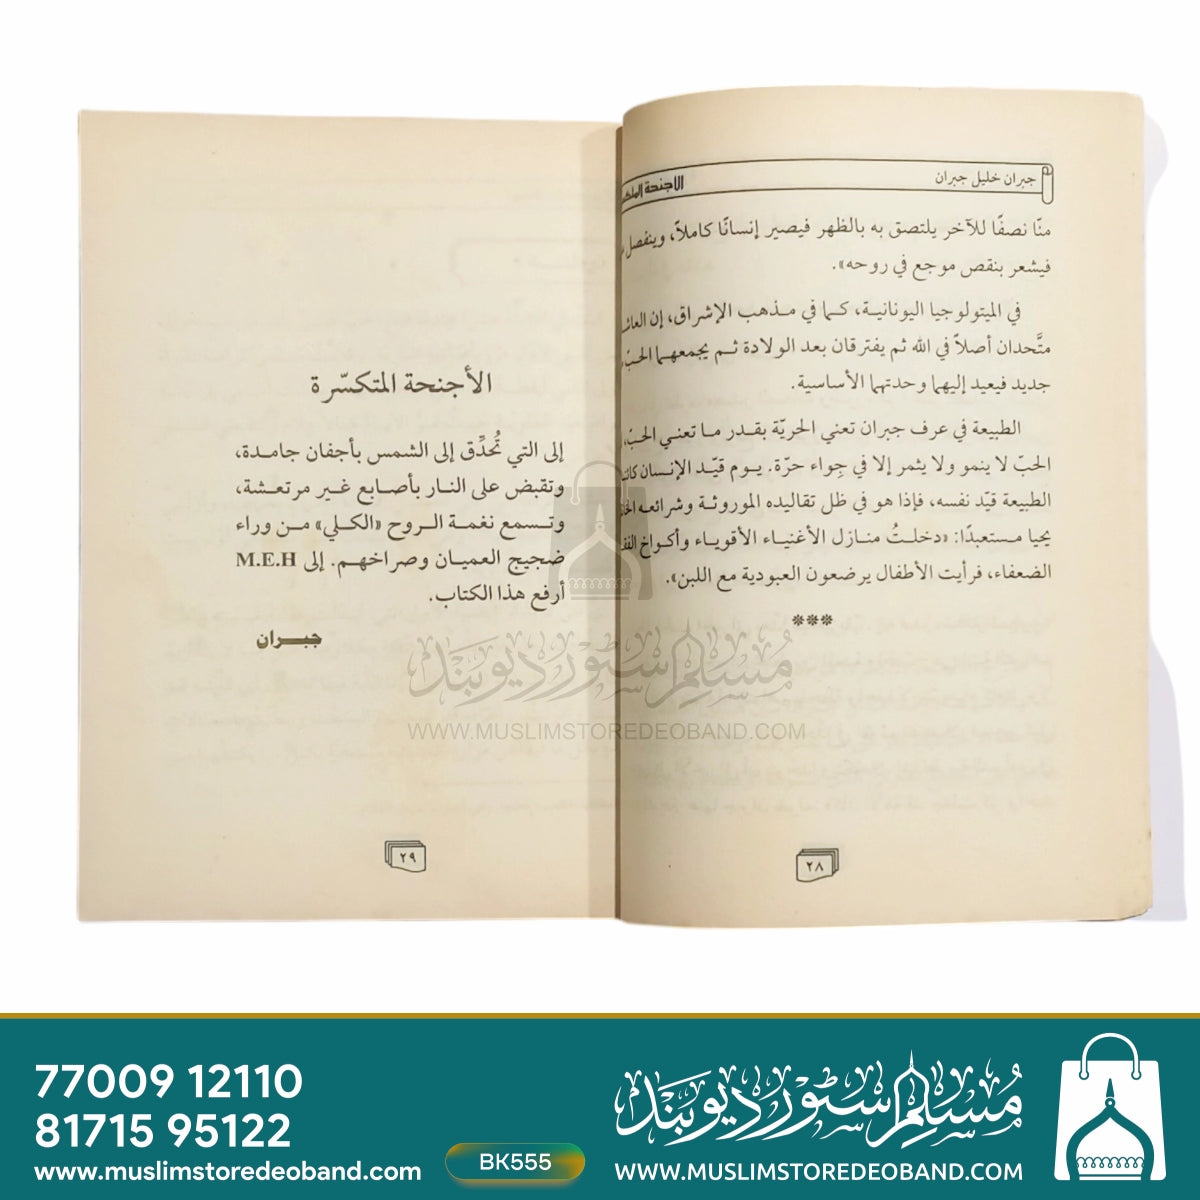 جبران خليل جبران
منّا نصفًا للآخر يلتصق به بالظهر فيصير إنسانًا كاملاً، وينفصل
فيشعر بنقص موجع في روحه».
في الميتولوجيا اليونانية، كما في مذهب الإشراق، إن
متَّحدان أصلاً في الله ثم يفترقان بعد الولادة ثم يجمعهما الحبّ
جديد فيعيد إليهما وحدتهما الأساسية.
الطبيعة في عرف جبران تعني الحريّة بقدر ما تعني الحبّ،
الحبّ لا ينمو ولا يثمر إلا في جِواء حرّة. يوم قيّد الإنسان
الطبيعة قيّد نفسه، فإذا هو في ظل تقاليده الموروثة وشرائعه
يحيا مستعبدًا: «دخلتُ منازل الأغنياء الأقوياء وأكواخ
الضعفاء، فرأيت الأطفال يرضعون العبودية مع اللبن».
***
٢٨
الأجنحة المتكسّرة
إلى التي تُحدِّق إلى الشمس بأجفان جامدة،
وتقبض على النار بأصابع غير مرتعشة،
وتسمع نغمة الروح «الكلي» من وراء
ضجيج العميان وصراخهم. إلى M.E.H
أرفع هذا الكتاب.
جبران
٢٩
مسلم سٹور دیوبند
WWW.MUSLIMSTOREDEOBAND.COM
77009 12110
81715 95122
www.muslimstoredeoband.com
BK555
مسلم سٹور دیوبند
WWW.MUSLIMSTOREDEOBAND.COM